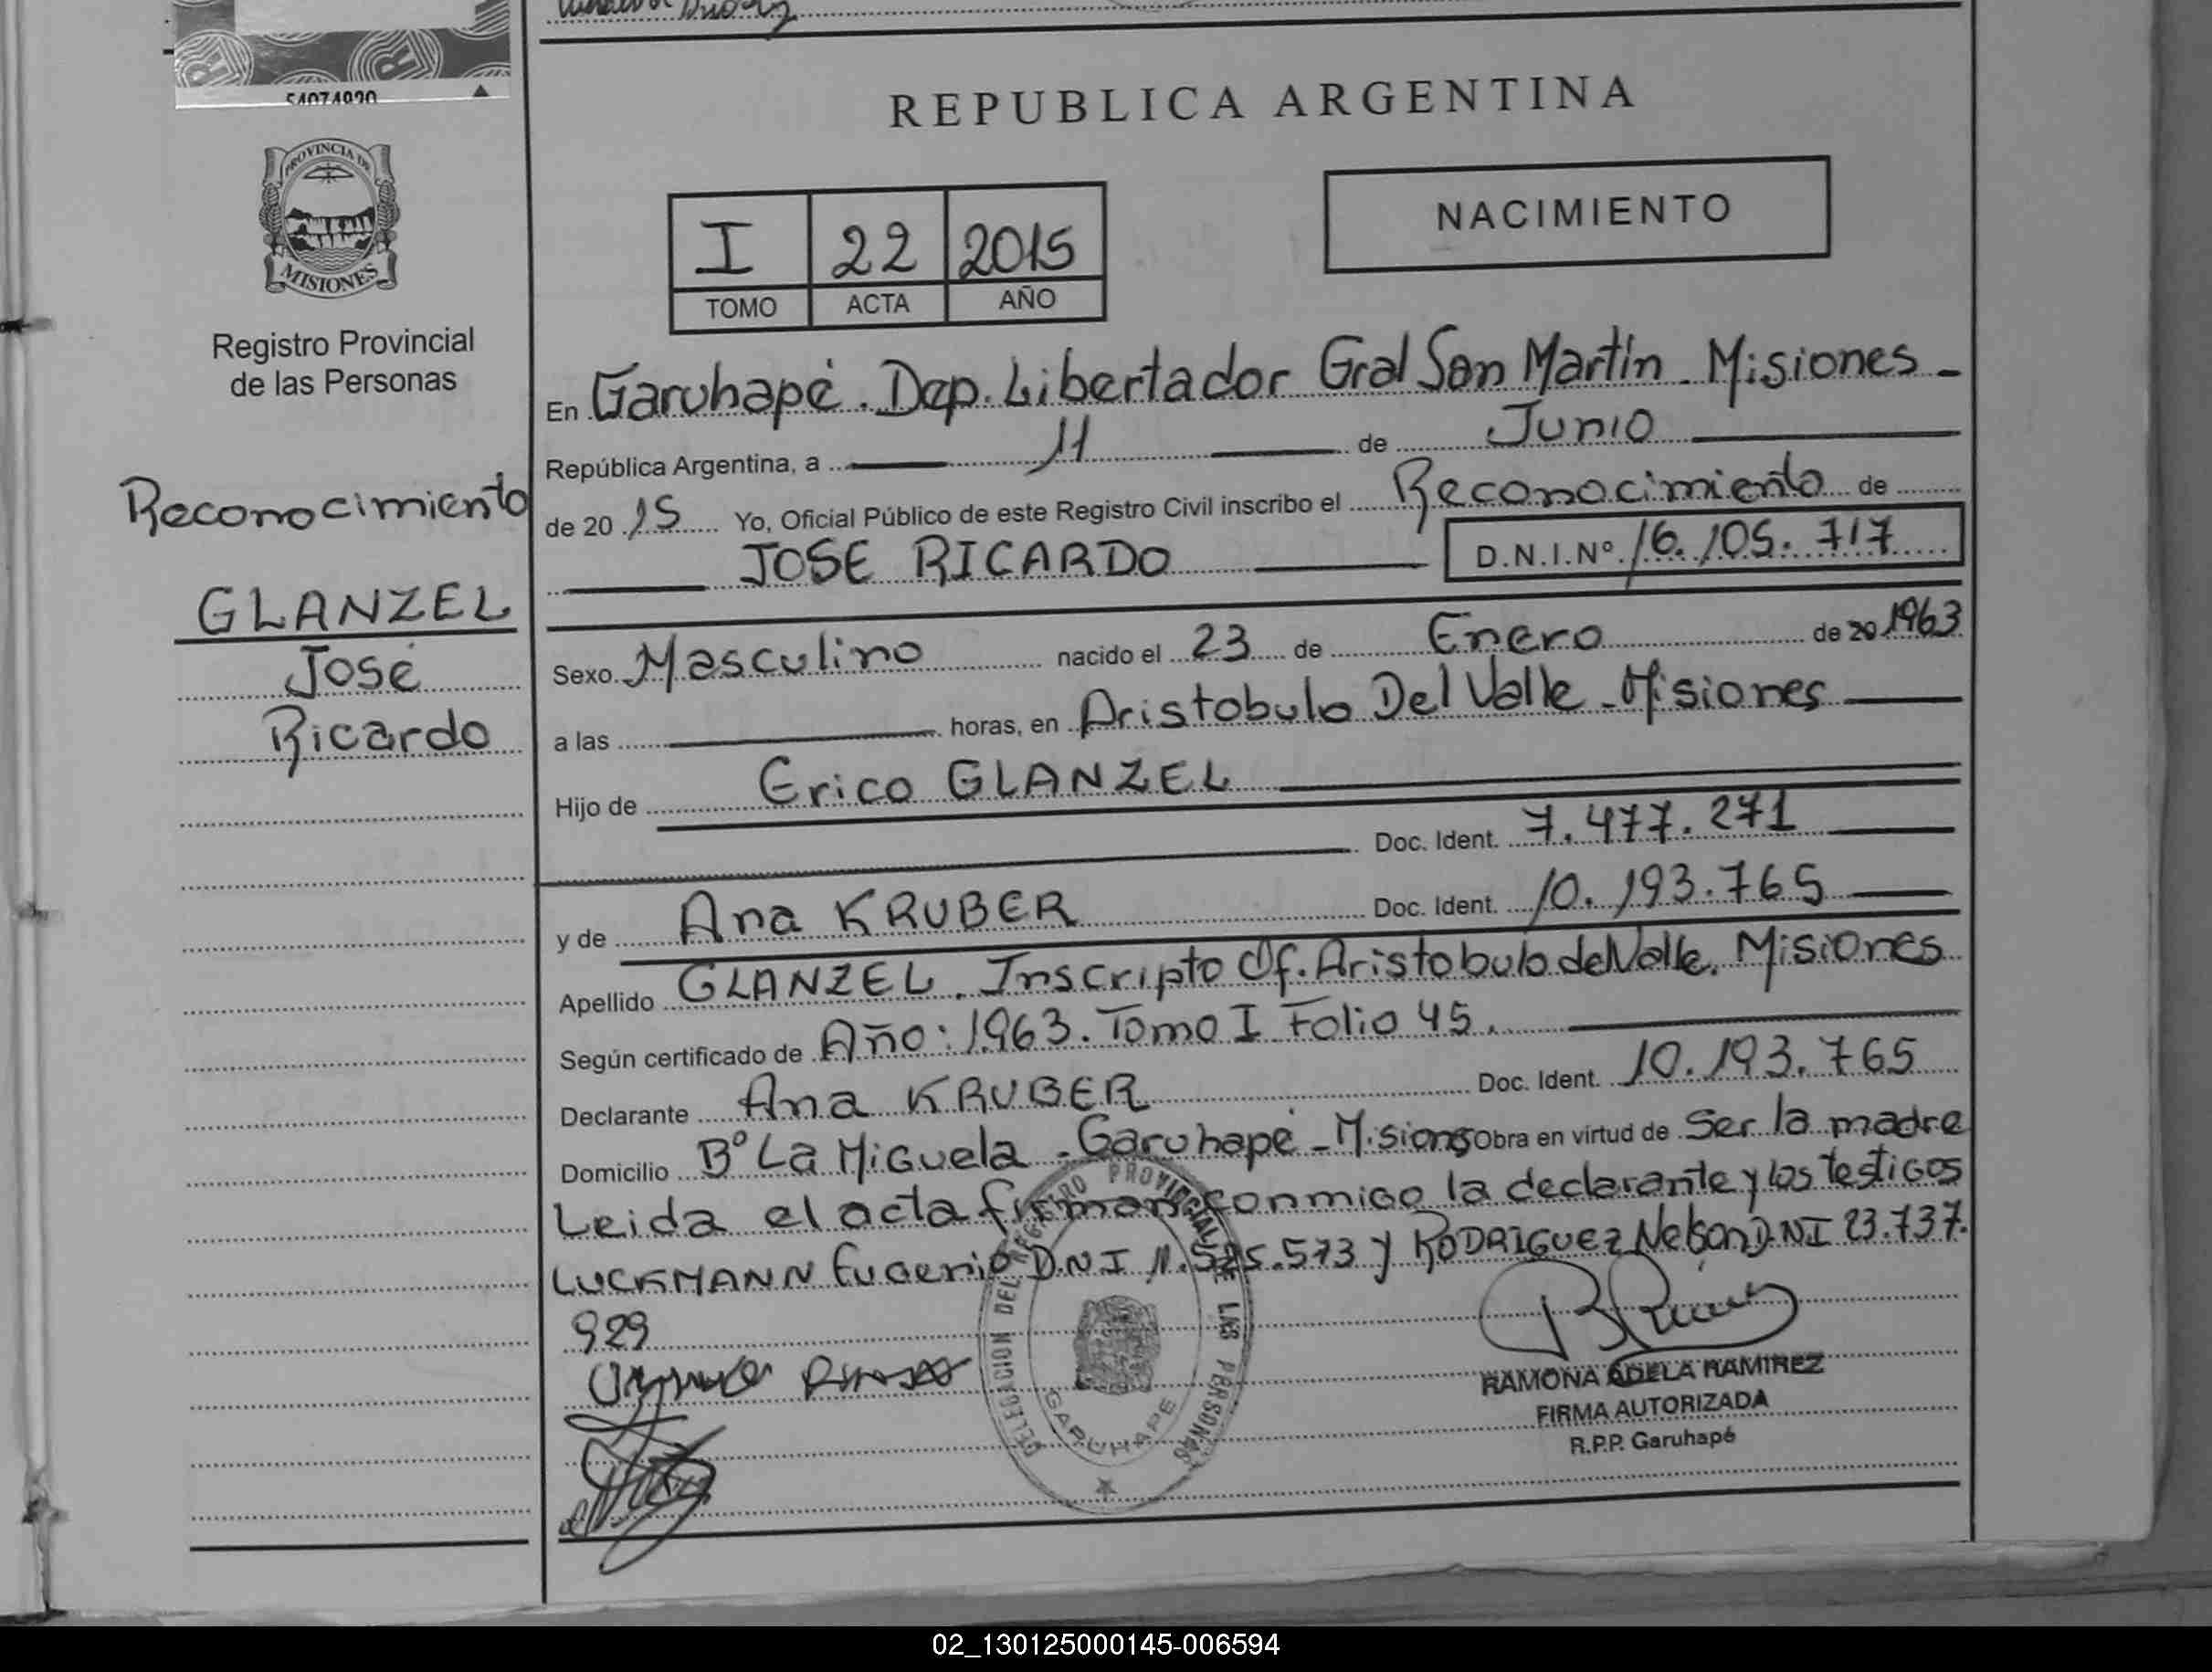 54074920
PROVINCIA DE
MISIONES
Registro Provincial
de las Personas
Reconocimiento
GLANZEL
José
Ricardo
REPUBLICA ARGENTINA
I 22 2015
TOMO ACTA AÑO
NACIMIENTO
En Garuhapé. Dep. Libertador Gral San Martín - Misiones -
República Argentina, a 11 de Junio
de 20 15 Yo, Oficial Público de este Registro Civil inscribo el Reconocimiento de
JOSE RICARDO D.N.I.Nº 16.105.717
Sexo Masculino nacido el 23 de Enero de 20 1963
a las horas, en Aristobulo Del Valle - Misiones
Hijo de Erico GLANZEL
Doc. Ident. 7.477.271
y de Ana KRUBER Doc. Ident. 10.193.765
Apellido GLANZEL. Inscripto Of. Aristobulo del Valle. Misiones
Según certificado de Año: 1963. Tomo I Folio 45.
Declarante Ana KRUBER Doc. Ident. 10.193.765
Domicilio Bº La Miguela - Garuhapé - Misiones Obra en virtud de Ser la madre
Leida el acta firman conmigo la declarante y los testigos
LUCKMANN Eugenio D.N.I 11.525.573 y RODRIGUEZ Nelson D.NI 23.737.
929
DELEGACION DEL REGISTRO PROVINCIAL DE LAS PERSONAS
GARUHAPE
RAMONA ADELA RAMIREZ
FIRMA AUTORIZADA
R.P.P. Garuhapé
02_130125000145-006594